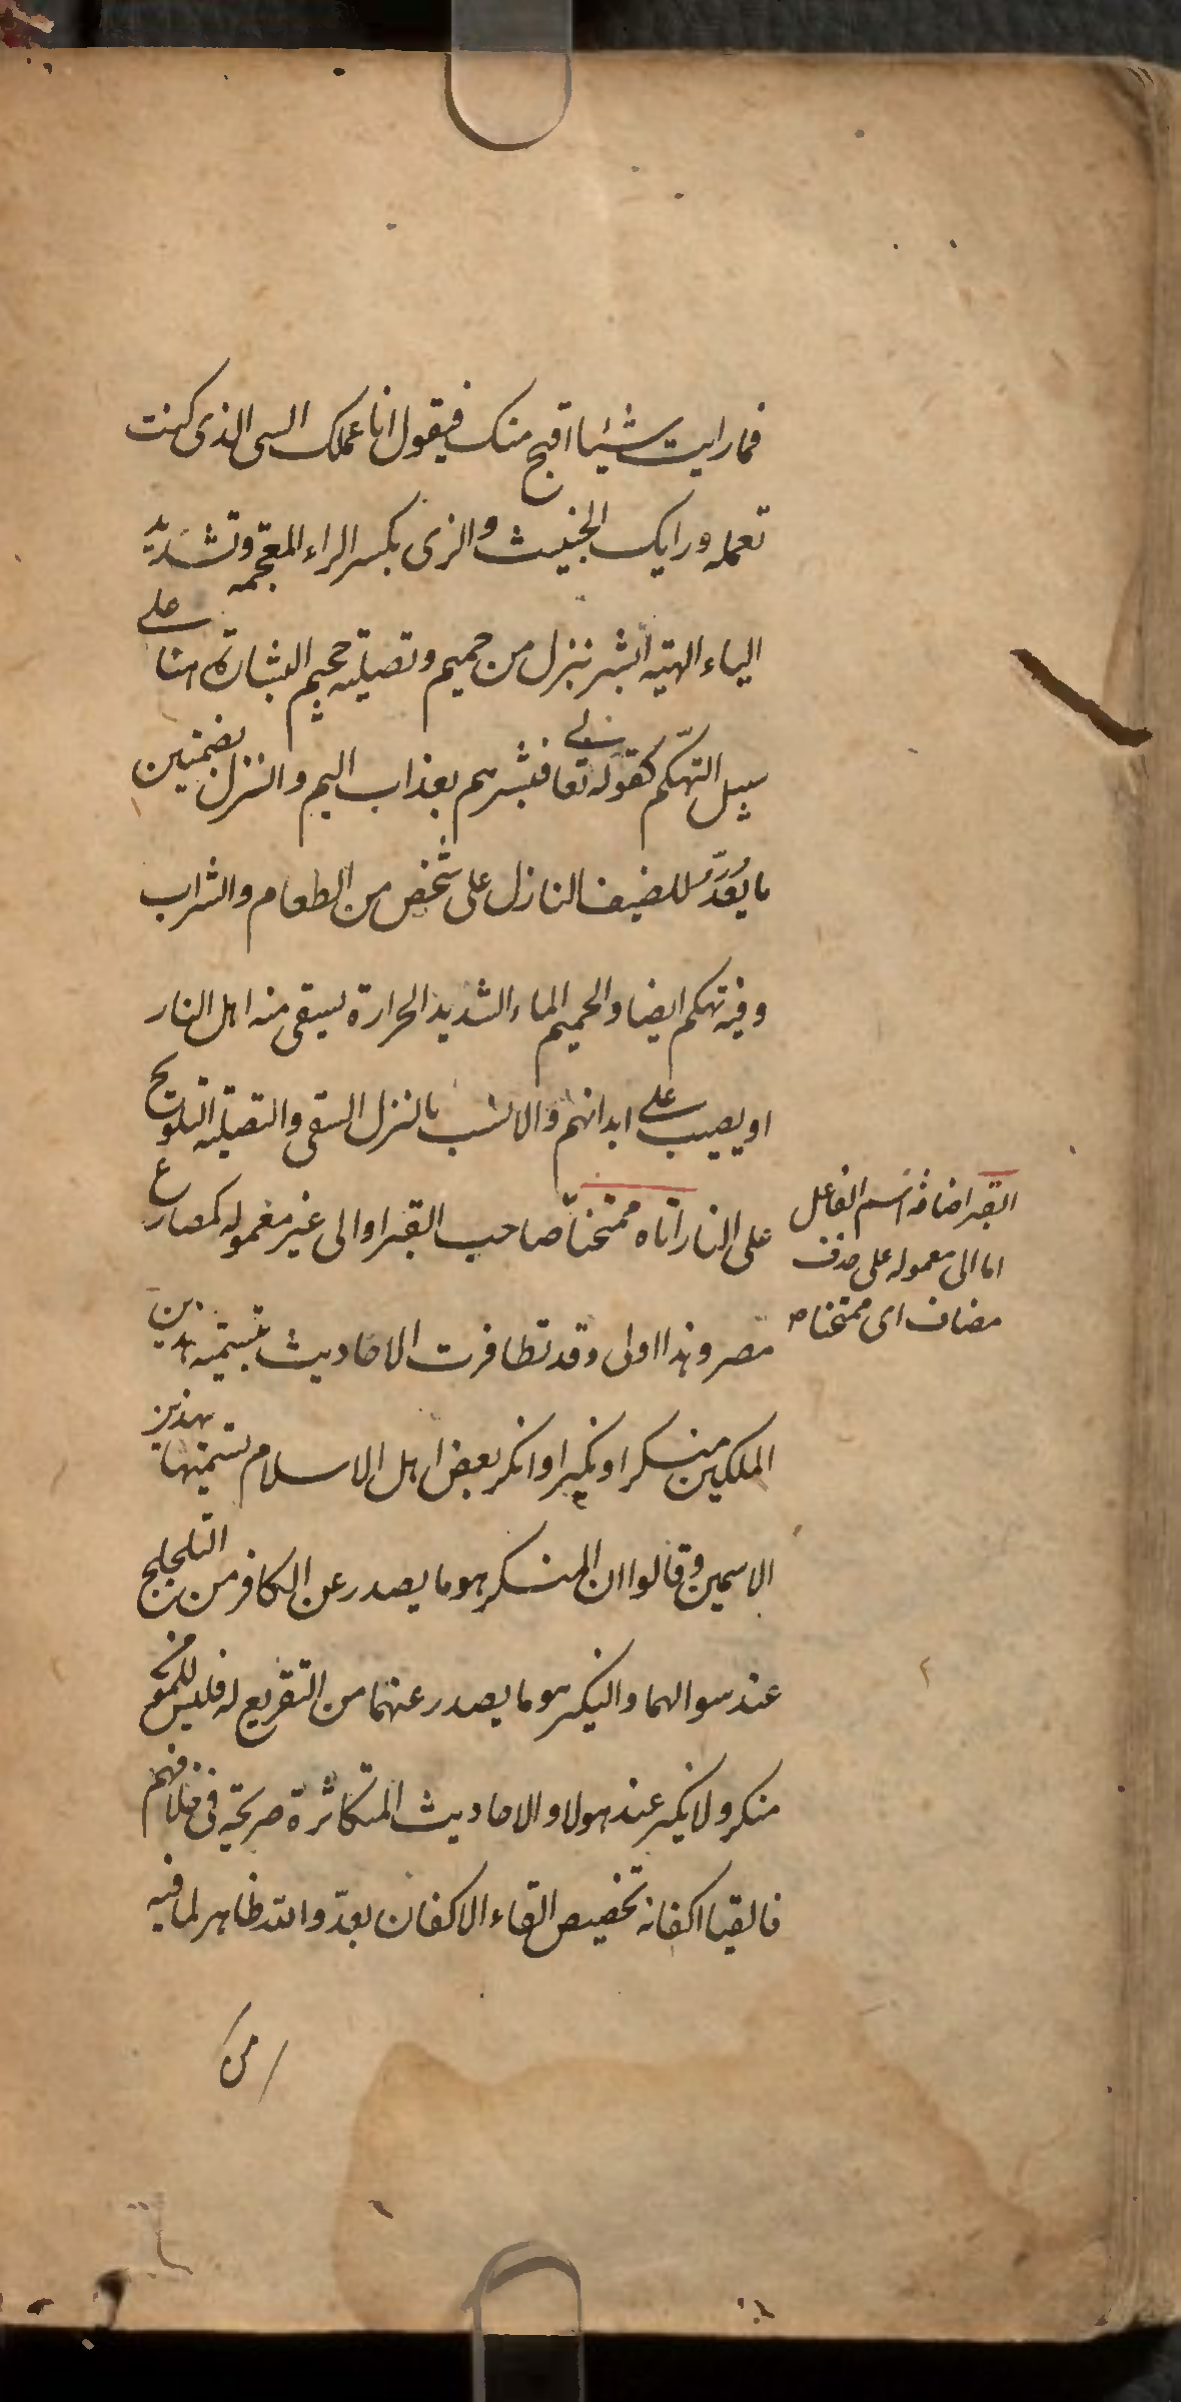 فما رايت شيئا اقبح منك فيقول انا عملك السى الذى كنت
تعمله ورايك الخبيث والزى بكسر الزاء المعجمه وتشديد
الياء الهيئه ابشر بنزل من حميم وتصليه جحيم البشارة هنا على
سبيل التهكم كقوله تعالى فبشرهم بعذاب اليم والنزل بضمتين
ما يعدّ للضيف النازل على شخص من الطعام والشراب
وفيه تهكم ايضا والحميم الماء الشديد الحرارة يسقى منه اهل النار
او يصب على ابدانهم والانسب بالنزل السقى والتصليه التلويح
على النار اتاه ممتحنا صاحب القبر او الى غير معموله كمصارع
مصر وهذا اولى وقد تظافرت الاحاديث بتسميه هذين
الملكين منكرا ونكيرا وانكر بعض اهل الاسلام تسميتهما بهذين
الاسمين وقالوا ان المنكر هو ما يصدر عن الكافر من التلجلج
عند سوالهما والنكير هو ما يصدر عنهما من التقريع له فليس للمومن
منكر ولا نكير عند هولاء والاحاديث المتكاثرة صريحة فى خلافهم
فالقيا اكفانه تخصيص القاء الاكفان بعدوّ الله ظاهر لما فيه
من
القبر اضافة اسم الفاعل
اما الى معموله على حذف
مضاف اى ممتحنا